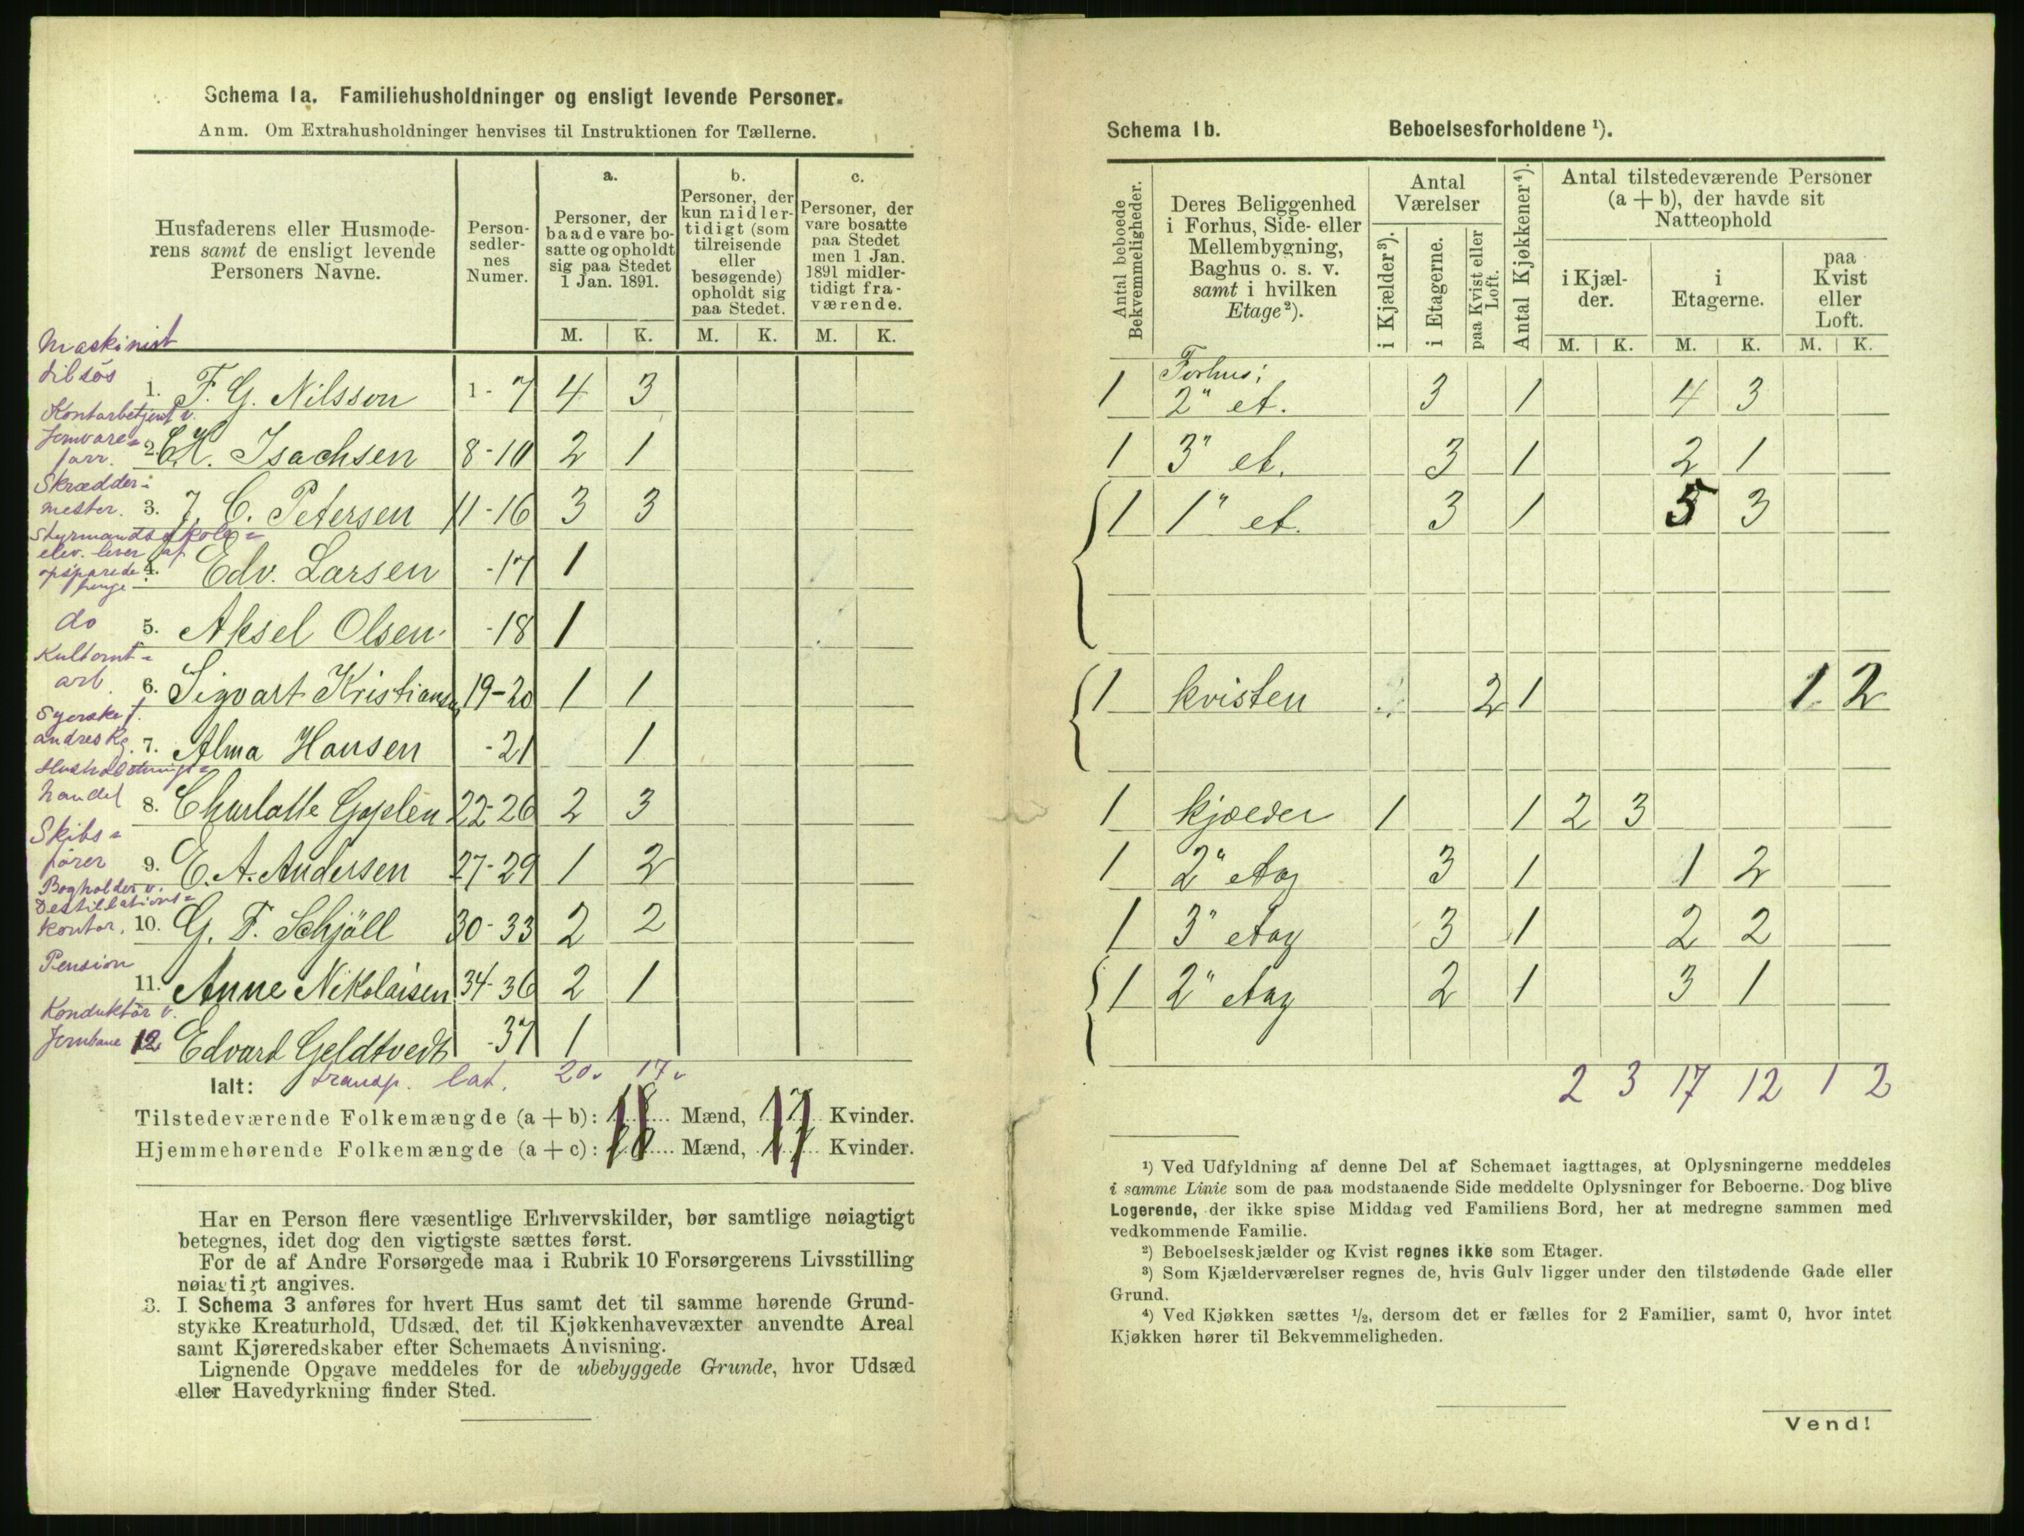 Schema 1a. Familiehusholdninger og ensligt levende Personer.
Anm. Om Extrahusholdninger henvises til Instruktionen for Tællerne.
Husfaderens eller Husmoderens samt de ensligt levende Personers Navne.
Person-sedler-nes Numer.
a. Personer, der baade vare bosatte og opholdt sig paa Stedet 1 Jan. 1891.
b. Personer, der kun midlertidigt (som tilreisende eller besøgende) opholdt sig paa Stedet.
c. Personer, der vare bosatte paa Stedet men 1 Jan. 1891 midlertidigt fraværende.
M. K. M. K. M. K.
Maskinist
tilsøs
1. F. G. Nilsson 1-7 4 3
Kontorbetjent v.
Jernvare=
forr.
2. C. H. Isachsen 8-10 2 1
Skrædder=
mester.
3. J. C. Petersen 11-16 3 3
Styrmandsskole=
elev. lever af
opsparede
penge
4. Edv. Larsen -17 1
do
5. Aksel Olsen -18 1
arb.
6. Sigvart Kristiansen 19-20 1 1
Syerske f.
andres Rg.
7. Alma Hansen -21 1
Husholdnings=
handel
8. Charlotte 22-26 2 3
Skibs=
fører
9. E. A. Andersen 27-29 1 2
Bogholder v.
Destillations=
kontor.
10. G. F. Schjöll 30-33 2 2
Pension
11. Anne Nikolaisen 34-36 2 1
Konduktör v.
Jernbane
12 Edvard Geldtvedt -37 1
Ialt: transp. lat. 20. 17.
Tilstedeværende Folkemængde (a + b): 18 Mænd, 17 Kvinder.
Hjemmehørende Folkemængde (a + c): 20 Mænd, 17 Kvinder.
Har en Person flere væsentlige Erhvervskilder, bør samtlige nøiagtigt
betegnes, idet dog den vigtigste sættes først.
For de af Andre Forsørgede maa i Rubrik 10 Forsørgerens Livsstilling
nøiagtigt angives.
3. I Schema 3 anføres for hvert Hus samt det til samme hørende Grund-
stykke Kreaturhold, Udsæd, det til Kjøkkenhavevæxter anvendte Areal
samt Kjøreredskaber efter Schemaets Anvisning.
Lignende Opgave meddeles for de ubebyggede Grunde, hvor Udsæd
eller Havedyrkning finder Sted.
Schema 1b. Beboelsesforholdene ¹).
Antal beboede Bekvemmeligheder.
Deres Beliggenhed i Forhus, Side- eller Mellembygning, Baghus o. s. v. samt i hvilken Etage ²).
Antal Værelser
i Kjælder ³).
i Etagerne.
paa Kvist eller Loft.
Antal Kjøkkener ⁴).
Antal tilstedeværende Personer (a + b), der havde sit Natteophold
i Kjælder.
i Etagerne.
paa Kvist eller Loft.
M. K. M. K. M. K.
Forhus:
1 2" et. 3 1 4 3
1 3" et. 3 1 2 1
1 1" et. 3 1 5 3
1 kvisten 2 1 1 2
1 kjælder 1 1 2 3
1 2" etag 3 1 1 2
1 3" etag 3 1 2 2
1 2" etag 2 1 3 1
2 3 17 12 1 2
¹) Ved Udfyldning af denne Del af Schemaet iagttages, at Oplysningerne meddeles
i samme Linie som de paa modstaaende Side meddelte Oplysninger for Beboerne. Dog blive
Logerende, der ikke spise Middag ved Familiens Bord, her at medregne sammen med
vedkommende Familie.
²) Beboelseskjælder og Kvist regnes ikke som Etager.
³) Som Kjælderværelser regnes de, hvis Gulv ligger under den tilstødende Gade eller
Grund.
⁴) Ved Kjøkken sættes ½, dersom det er fælles for 2 Familier, samt 0, hvor intet
Kjøkken hører til Bekvemmeligheden.
Vend!